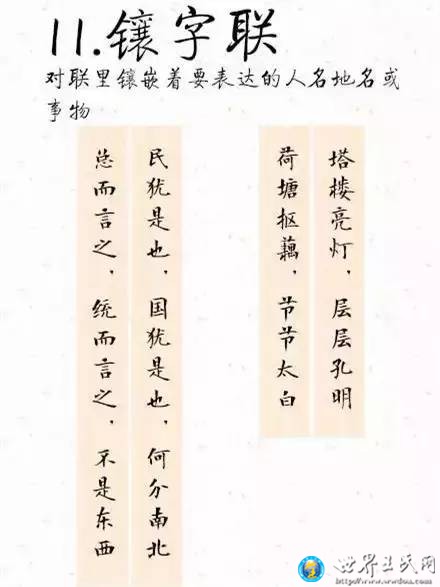 11.镶字联
对联里镶嵌着要表达的人名地名或
事物
塔楼亮灯，层层孔明
荷塘抠藕，节节太白
民犹是也，国犹是也，何分南北
总而言之，统而言之，不是东西
世界王氏网
http://www.wwdoa.com